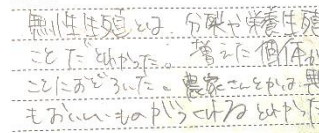 無性生殖とは、分裂や栄養生殖
ことだとわかった。増えた個体が
ことにおどろいた。農家さんとかは、
もおいしいものがつくれるとわかった